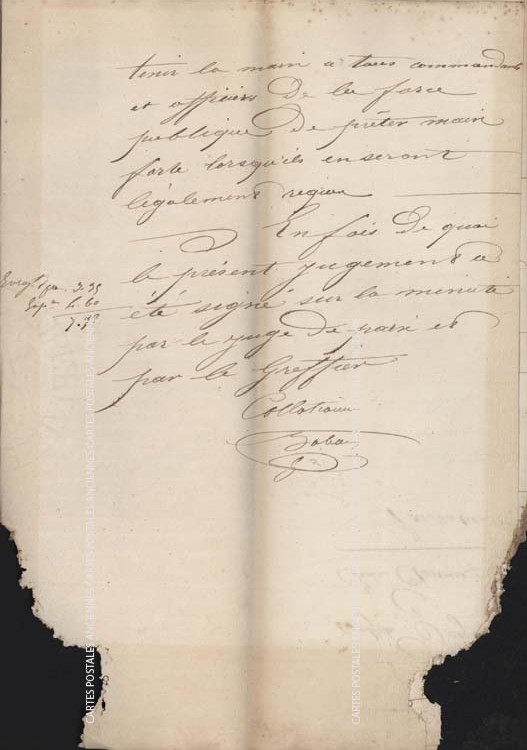 tenir la main a tous commandants
et officiers de la force
publique de prêter main
forte lorsqu'ils en seront
légalement requis
En fois de quoi
le présent jugement a
été signé sur la minute
par le juge de paix et
par le Greffier
Collationné
3.35
4.60
CARTES POSTALES ANCIENNES CARTES POSTALES ANCIENNES CARTES POSTALES ANCIENNES
CARTES POSTALES